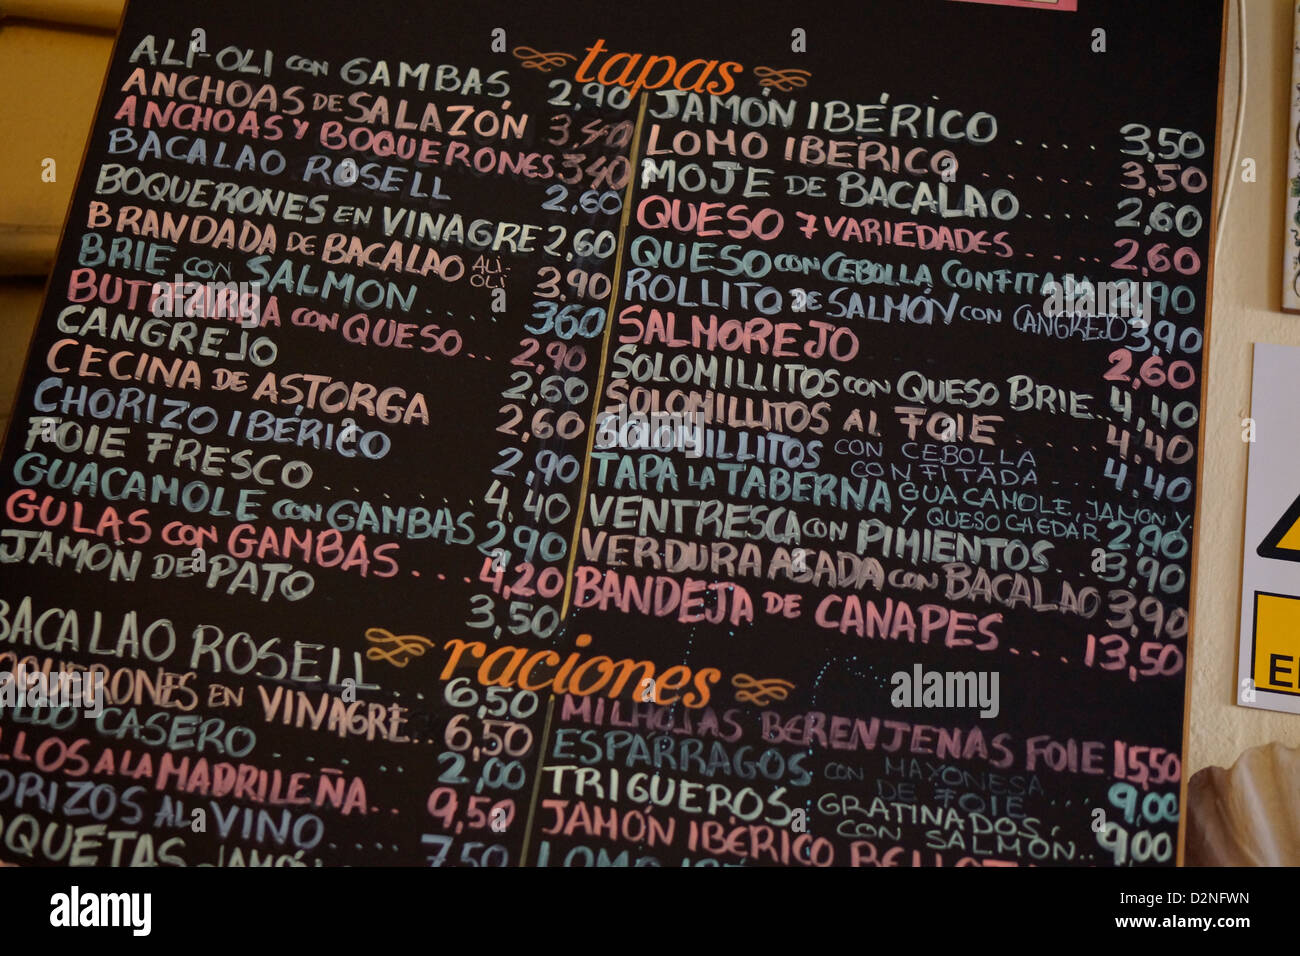 tapas
ALÍ-OLI CON GAMBAS 2,90
ANCHOAS DE SALAZÓN 3,40
ANCHOAS Y BOQUERONES 3,40
BACALAO ROSELL 2,60
BOQUERONES EN VINAGRE 2,60
BRANDADA DE BACALAO ALI-OLI 3,90
BRIE CON SALMON.... 3,60
BUTIFARRA CON QUESO.. 2,90
CANGREJO 2,60
CECINA DE ASTORGA 2,60
CHORIZO IBÉRICO 2,90
FOIE FRESCO ....... 4.40
GUACAMOLE CON GAMBAS 2,90
GULAS CON GAMBAS ... 4,20
JAMON DE PATO 3,50
JAMÓN IBÉRICO .... 3,50
LOMO IBERICO ...... 3,50
MOJE DE BACALAO.... 2,60
QUESO 7 VARIEDADES... 2,60
QUESO CON CEBOLLA CONFITADA 2,90
ROLLITO DE SALMÓN CON CANGREJO 3,90
SALMOREJO 2,60
SOLOMILLITOS CON QUESO BRIE.. 4,40
SOLOMILLITOS AL FOIE ... 4.40
SOLOMILLITOS CON CEBOLLA CONFITADA . 4.40
TAPA LA TABERNA GUACAMOLE, JAMÓN Y
Y QUESO CHEDAR 2,90
VENTRESCA CON PIMIENTOS... 3,90
VERDURA ASADA CON BACALAO 3,90
BANDEJA DE CANAPES.... 13,50
raciones
BACALAO ROSELL.. 6,50
OQUERONES EN VINAGRE.. 6,50
LDO CASERO ...... 2,00
LLOS A LA MADRILEÑA.. 9,50
ORIZOS AL VINO 7,50
OQUETAS JAMÓN
MILHOJAS BERENJENAS FOIE 15,50
ESPÁRRAGOS CON MAYONESA
DE FOIE .... 9,00
TRIGUEROS GRATINADOS,
CON SALMÓN.. 9,00
JAMÓN IBÉRICO
LOMO
alamy
Image ID: D2NFWN
www.alamy.com